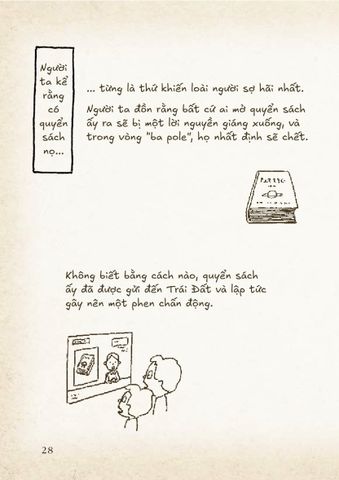 Người
ta kể
rằng
có
quyển
sách
nọ...
... từng là thứ khiến loài người sợ hãi nhất.
Người ta đồn rằng bất cứ ai mở quyển sách
ấy ra sẽ bị một lời nguyền giáng xuống, và
trong vòng "ba pole", họ nhất định sẽ chết.
Không biết bằng cách nào, quyển sách
ấy đã được gửi đến Trái Đất và lập tức
gây nên một phen chấn động.
28